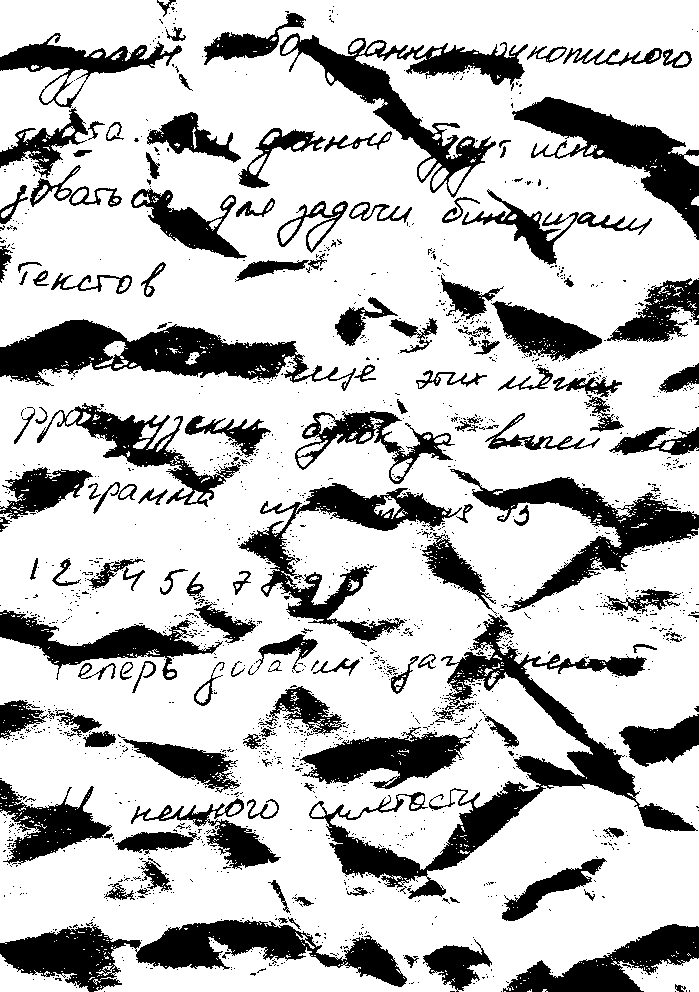 Создаем набор данных рукописного
текста. Эти данные будут исполь
зоваться для задачи бинаризации
Текстов
ещё этих мягких
французских булок да выпей
грамма из
1 2 3 4 5 6 7 8 9 10
Теперь добавим загрязнений
И немного смятости